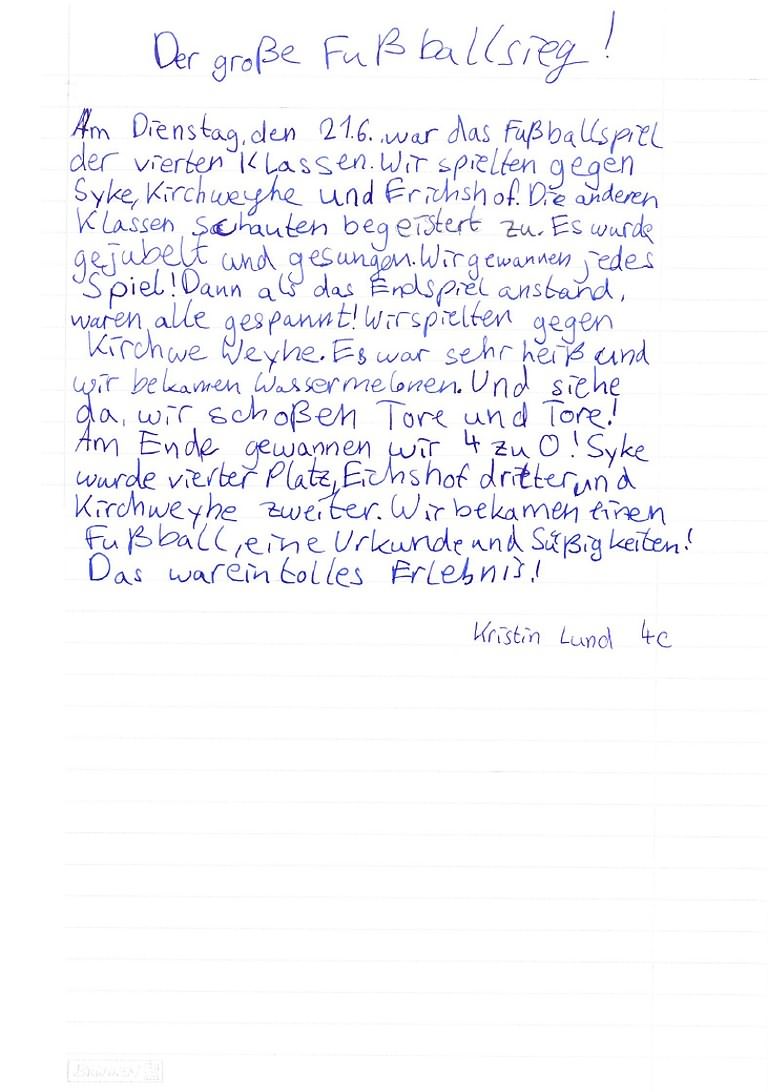 Der große Fußballsieg!
Am Dienstag, den 21.6. war das Fußballspiel
der vierten Klassen. Wir spielten gegen
Syke, Kirchweyhe und Erichshof. Die anderen
Klassen schauten begeistert zu. Es wurde
gejubelt und gesungen. Wir gewannen jedes
Spiel! Dann als das Endspiel anstand,
waren alle gespannt! Wir spielten gegen
Kirchwe Weyhe. Es war sehr heiß und
wir bekamen Wassermelonen. Und siehe
da, wir schoßen Tore und Tore!
Am Ende gewannen wir 4 zu 0! Syke
wurde vierter Platz, Eichshof dritter und
Kirchweyhe zweiter. Wir bekamen einen
Fußball, eine Urkunde und Süßigkeiten!
Das war ein tolles Erlebnis!
Kristin Lund 4c